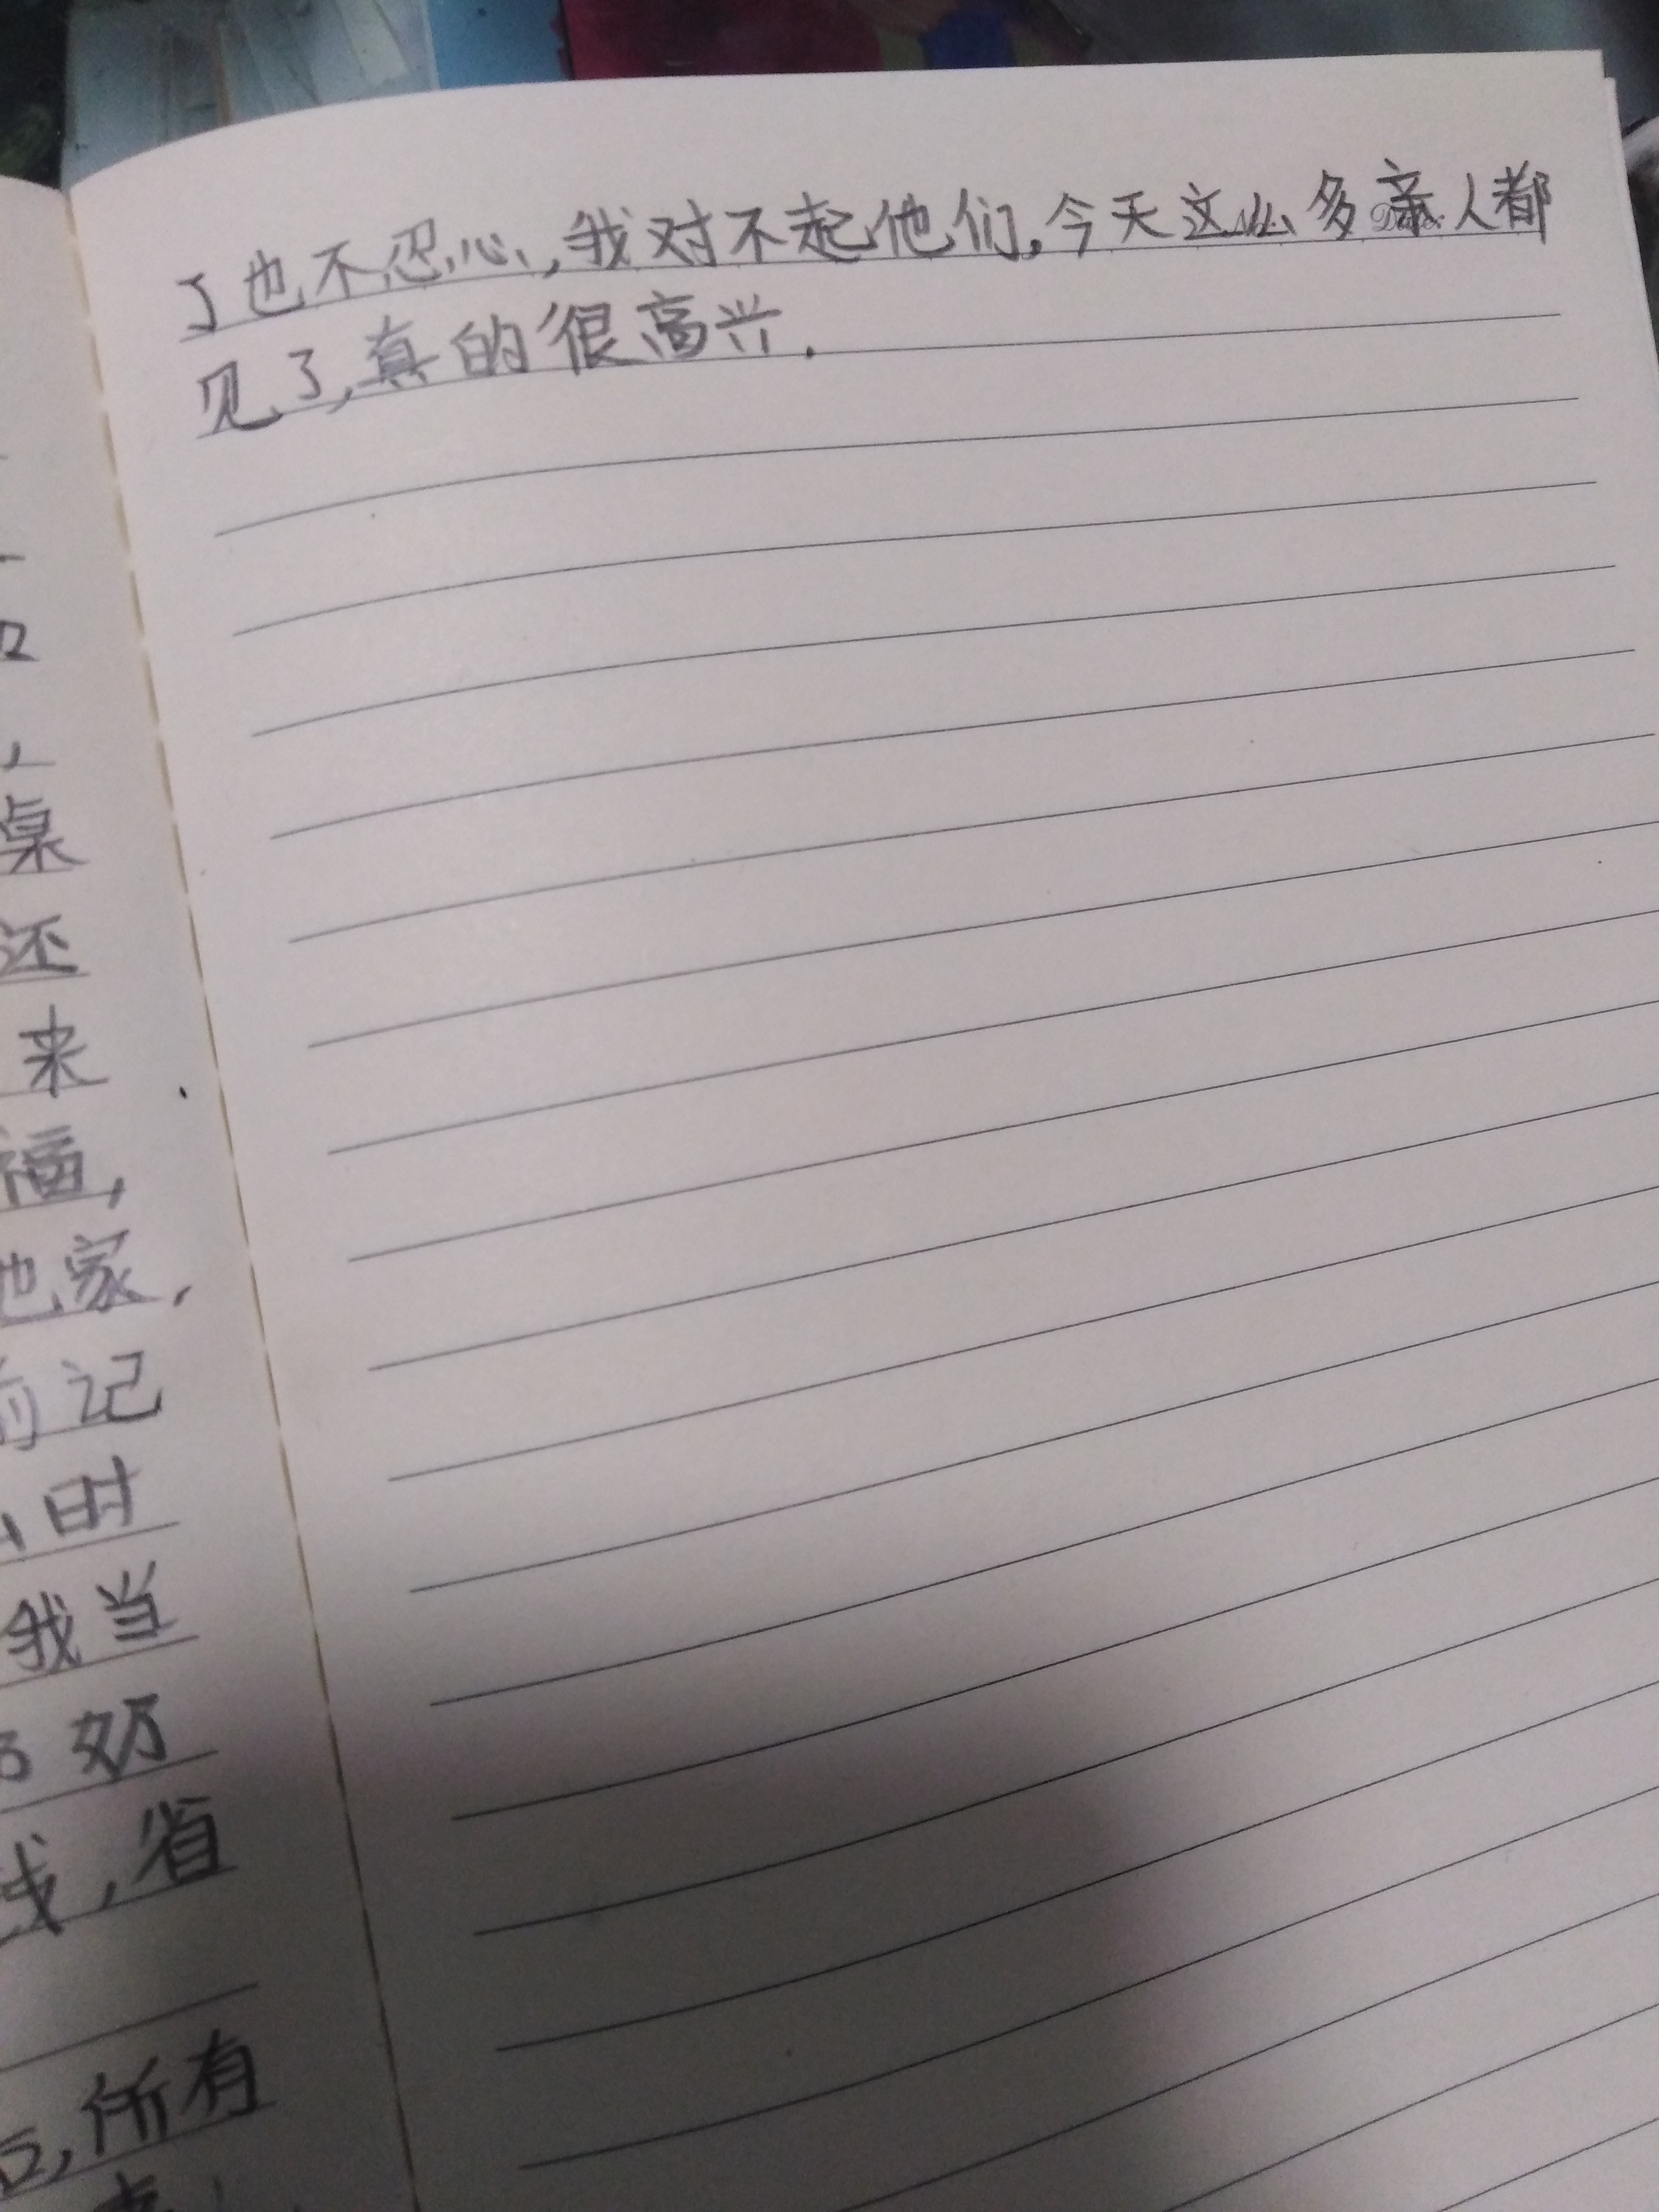 了也不忍心,我对不起他们.今天这么多亲人都
见了,真的很高兴.
桌
还
来
福,
他家,
前记
时
我当
奶
钱,省
所有